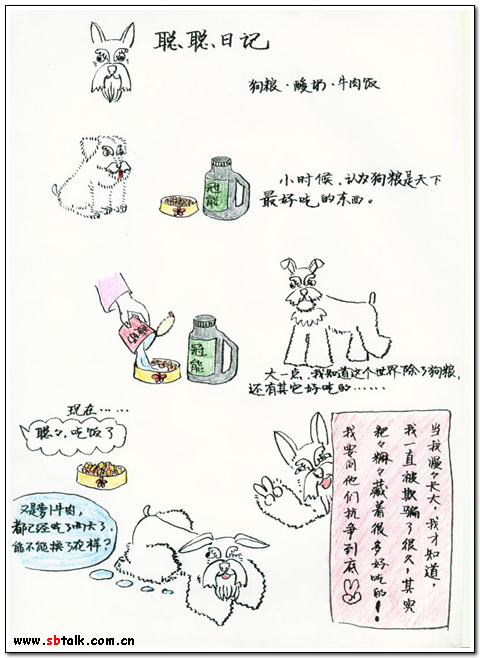 聪聪日记
狗粮·酸奶·牛肉饭
冠能
小时候,认为狗粮是天下
最好吃的东西。
冠能
大一点,我知道这个世界除了狗粮,
还有其它好吃的……
现在……
聪々,吃饭了
又是萝卜牛肉,
都已经吃了两天了,
能不能换了花样?
当我慢々长大,我才知道,
我一直被欺骗了很久,其实
粑々嘛々藏着很多好吃的!
我要同他们抗争到底
www.sbtalk.com.cn